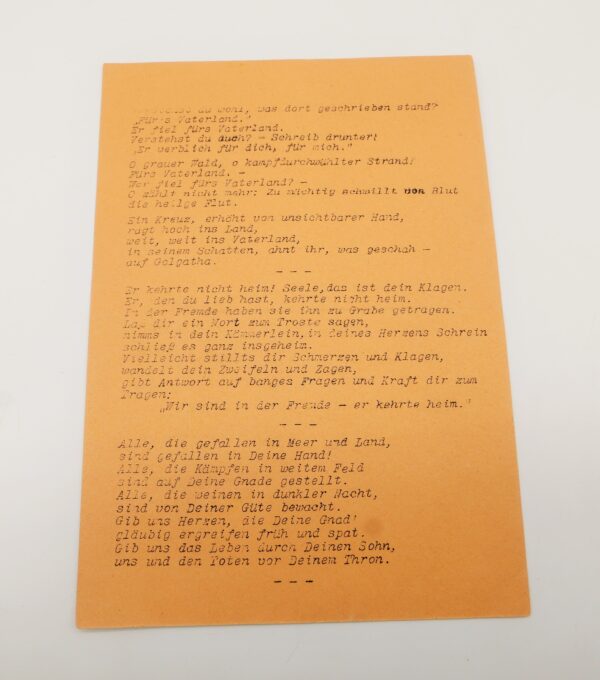 du wohl, was dort geschrieben stand?
„Für's Vaterland."
Er fiel fürs Vaterland.
Verstehst du auch? - Schreib drunter!
„Er verblich für dich, für mich."
O grauer Wald, o kampfdurchwühlter Strand!
Fürs Vaterland. -
Wer fiel fürs Vaterland? -
O zählt nicht mehr: Zu mächtig schwillt von Blut
die heilge Flut.
Ein Kreuz, erhöht von unsichtbarer Hand,
ragt hoch ins Land,
weit, weit ins Vaterland,
in seinem Schatten, ahnt ihr, was geschah -
auf Golgatha.
- - -
Er kehrte nicht heim! Seele, das ist dein Klagen.
Er, den du lieb hast, kehrte nicht heim.
In der Fremde haben sie ihn zu Grabe getragen.
Laß dir ein Wort zum Troste sagen,
nimms in dein Kämmerlein, in deines Herzens Schrein
schließ es ganz insgeheim.
Vielleicht stillts dir Schmerzen und Klagen,
wandelt dein Zweifeln und Zagen,
gibt Antwort auf banges Fragen und Kraft dir zum
Tragen:
„Wir sind in der Fremde - er kehrte heim."
- - -
Alle, die gefallen in Meer und Land,
sind gefallen in Deine Hand!
Alle, die Kämpfen in weitem Feld
sind auf Deine Gnade gestellt.
Alle, die weinen in dunkler Nacht,
sind von Deiner Güte bewacht.
Gib uns Herzen, die Deine Gnad'
gläubig ergreifen früh und spat.
Gib uns das Leben durch Deinen Sohn,
uns und den Toten vor Deinem Thron.
- - -